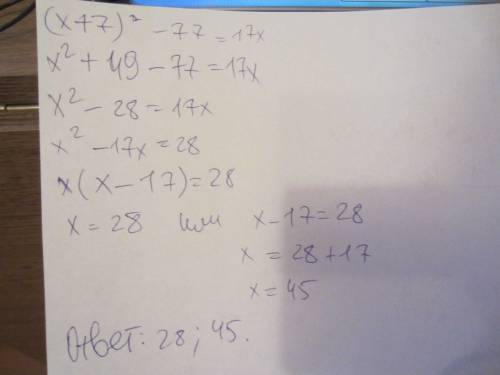 (x+7)² - 77 = 17x
x² + 49 - 77 = 17x
x² - 28 = 17x
x² - 17x = 28
x(x - 17) = 28
x = 28 или x - 17 = 28
x = 28 + 17
x = 45
Ответ: 28; 45.